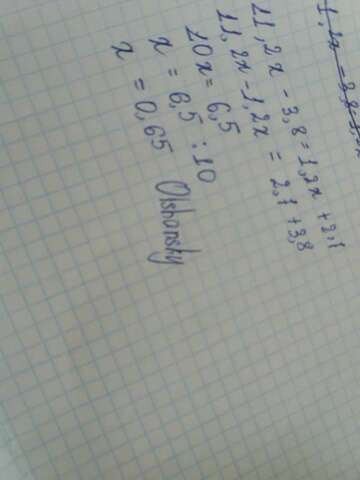 11,2x - 3,8 = 1,2x + 2,7
11,2x - 1,2x = 2,7 + 3,8
10x = 6,5
x = 6,5 : 10
x = 0,65 Olshansky